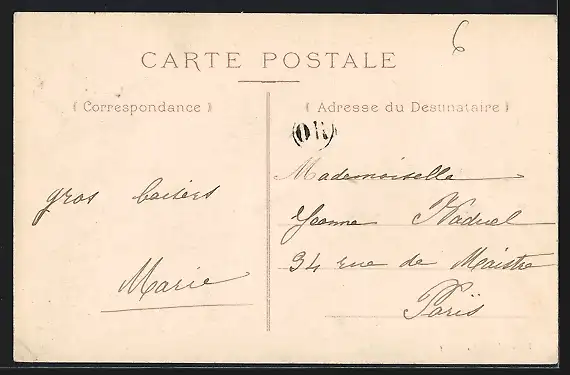 6
CARTE POSTALE
( Correspondance )
( Adresse du Destinataire )
(OR)
Mademoiselle
gros baisers
Jeanne
34 rue de Maistre
Marie
Paris